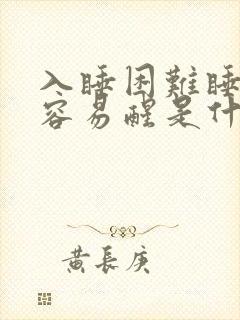 入睡困難睡
容易醒是什
黃長庚